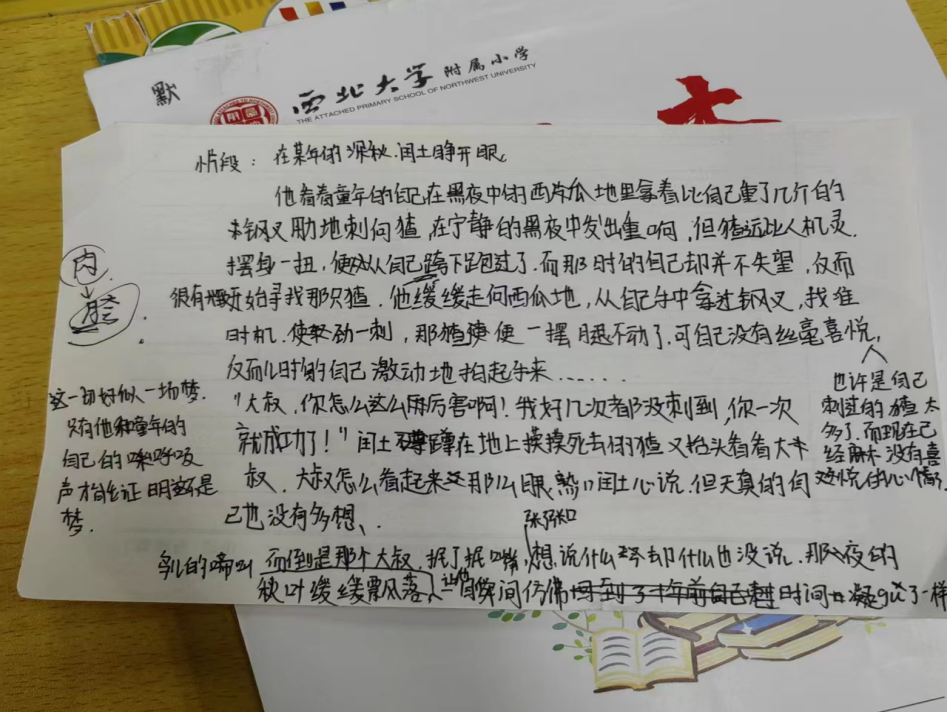 默
西北大学附属小学
THE ATTACHED PRIMARY SCHOOL OF NORTHWEST UNIVERSITY
片段：在某年的深秋.闰土睁开眼。
他看着童年的自己在黑夜中的西瓜地里拿着比自己重了几斤的
钢叉 地刺向猹,在宁静的黑夜中发出重响,但猹远比人机灵.
摆身一扭,便从自己跨下跑过了.而那时的自己却并不失望,反而
很有 开始寻找那只猹.他缓缓走向西瓜地,从自己手中拿过钢叉,找准
时机.使劲一刺,那猹便一摆腿不动了.可自己没有丝毫喜悦,
反而儿时的自己激动地拍起手来……
"大叔,你怎么这么厉害啊!我好几次都没刺到,你一次
就成功了!"闰土蹲在地上摸摸死去的猹又抬头看看大
叔.大叔怎么看起来那么眼熟 闰土心说.但天真的自
己也没有多想、
鸟儿的啼叫 而倒是那个大叔.抿了抿嘴,想说什么 却什么也没说.那夜的
秋叶缓缓飘落、 瞬间仿佛 时间 凝gu了一样
肉
这一切好似一场梦.
只有他和童年的
自己的 呼吸
声才能证明这不是
梦.
也许是自己
刺过的猹太
多了.而现在已
经 没有喜
悦的心情
张张口